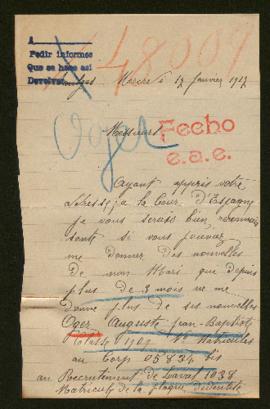 A
Pedir informes
Que se haga así
Devolver
Macré á 17 Janvier 1917
Oger
Messieurs
Fecho
e.a.e.
Ayant appris votre
adresse, a la Cour d'Espagne
je vous serais bien reconnais
sante si vous pouviez
me donner des nouvelles
de mon Mari que depuis
plus de 3 mois ne me
donne plus de ses nouvelles
Oger Auguste Jean-Baptist
Classe 1904 No Matricules
au Corp 05834
au Recrutement de Laval 1038
Matricule de la plaque